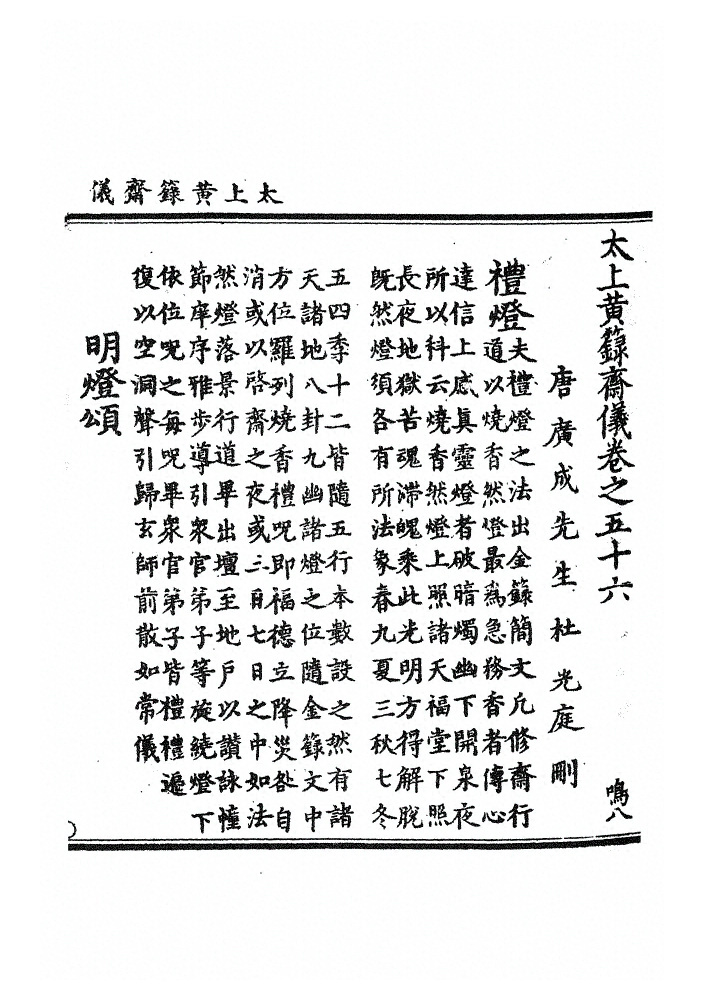 太上黃籙齋儀
太上黃籙齋儀卷之五十六 鳴八
唐廣成先生杜光庭刪
禮燈夫禮燈之法出金籙簡文凡修齋行
道以燒香然燈最爲急務香者傳心
達信上感真靈燈者破暗燭幽下開泉夜
所以科云燒香然燈上照諸天福堂下照
長夜地獄苦魂滯魄乘此光明方得解脫
旣然燈須各有所法象春九夏三秋七冬
五四季十二皆隨五行本數設之然有諸
天諸地八卦九幽諸燈之位隨金籙文中
方位羅列燒香禮咒即福德立降災咎自
消或以啓齋之夜或三日七日之中如法
然燈落景行道畢出壇至地戶以讚詠幢
節庠序雅步導引衆官弟子等旋繞燈下
依位咒之每咒畢衆官弟子皆禮禮遍
復以空洞聲引歸玄師前散如常儀
明燈頌